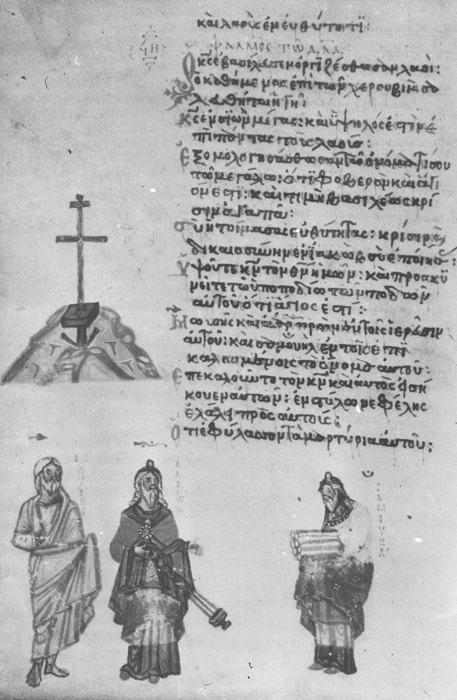 καὶ λαοὺς ἐν εὐθύτητι:
ϟη ψαλμὸς τῶ δαδ
Ὁ κς ἐβασίλευσεν ὀργιζέσθωσαν λαοί:
ὁ καθήμενος ἐπὶ τῶν χερουβὶμ σα
λευθήτω ἡ γῆ:
κς ἐν σιὼν μέγας: καὶ ὑψηλός ἐστιν ἐ
πὶ πάντας τοὺς λαούς:
ἐξομολογησάσθωσαν τῶ ὀνόματί σου
τῶ μεγάλω: ὅτι φοβερὸν καὶ ἅγι
όν ἐστι: καὶ τιμὴ βασιλέως κρί
σιν ἀγαπᾶ:
σὺ ἡτοίμασας εὐθύτητας: κρίσιν καὶ
δικαιοσύνην ἐν ἰακὼβ σὺ ἐποίησας:
ὑψοῦτε κν τὸν θν ἡμῶν: καὶ προσκυ
νεῖτε τῶ ὑποποδίω τῶν ποδῶν
αὐτοῦ ὅτι ἅγιός ἐστι:
Μωυσῆς καὶ ἀαρὼν ἐν τοῖς ἱερεῦσιν
αὐτοῦ: καὶ σαμουὴλ ἐν τοῖς ἐπι
καλουμένοις τὸ ὄνομα αὐτοῦ:
ἐπεκαλοῦντο τὸν κν καὶ αὐτὸς εἰσή
κουεν αὐτῶν: ἐν στύλω νεφέλης
ἐλάλει πρὸς αὐτούς:
ὅτι ἐφύλασσον τὰ μαρτύρια αὐτοῦ: